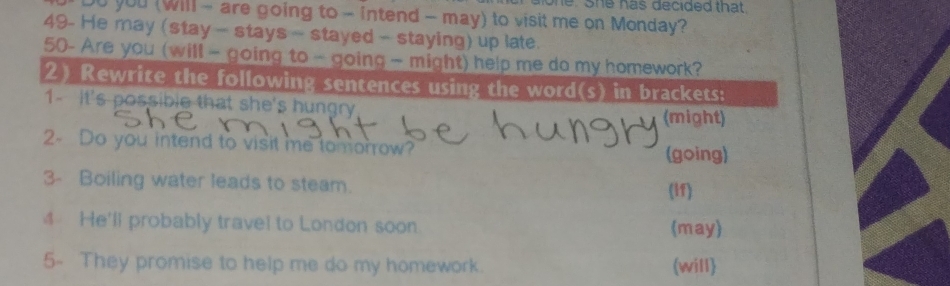 you (will – are going to – intend – may) to visit me on Monday?
49- He may (stay – stays – stayed – staying) up late.
50- Are you (will – going to – going – might) help me do my homework?
2) Rewrite the following sentences using the word(s) in brackets:
1- It's possible that she's hungry. (might)
she might be hungry
2- Do you intend to visit me tomorrow? (going)
3- Boiling water leads to steam. (If)
4 He'll probably travel to London soon. (may)
5- They promise to help me do my homework. (will)